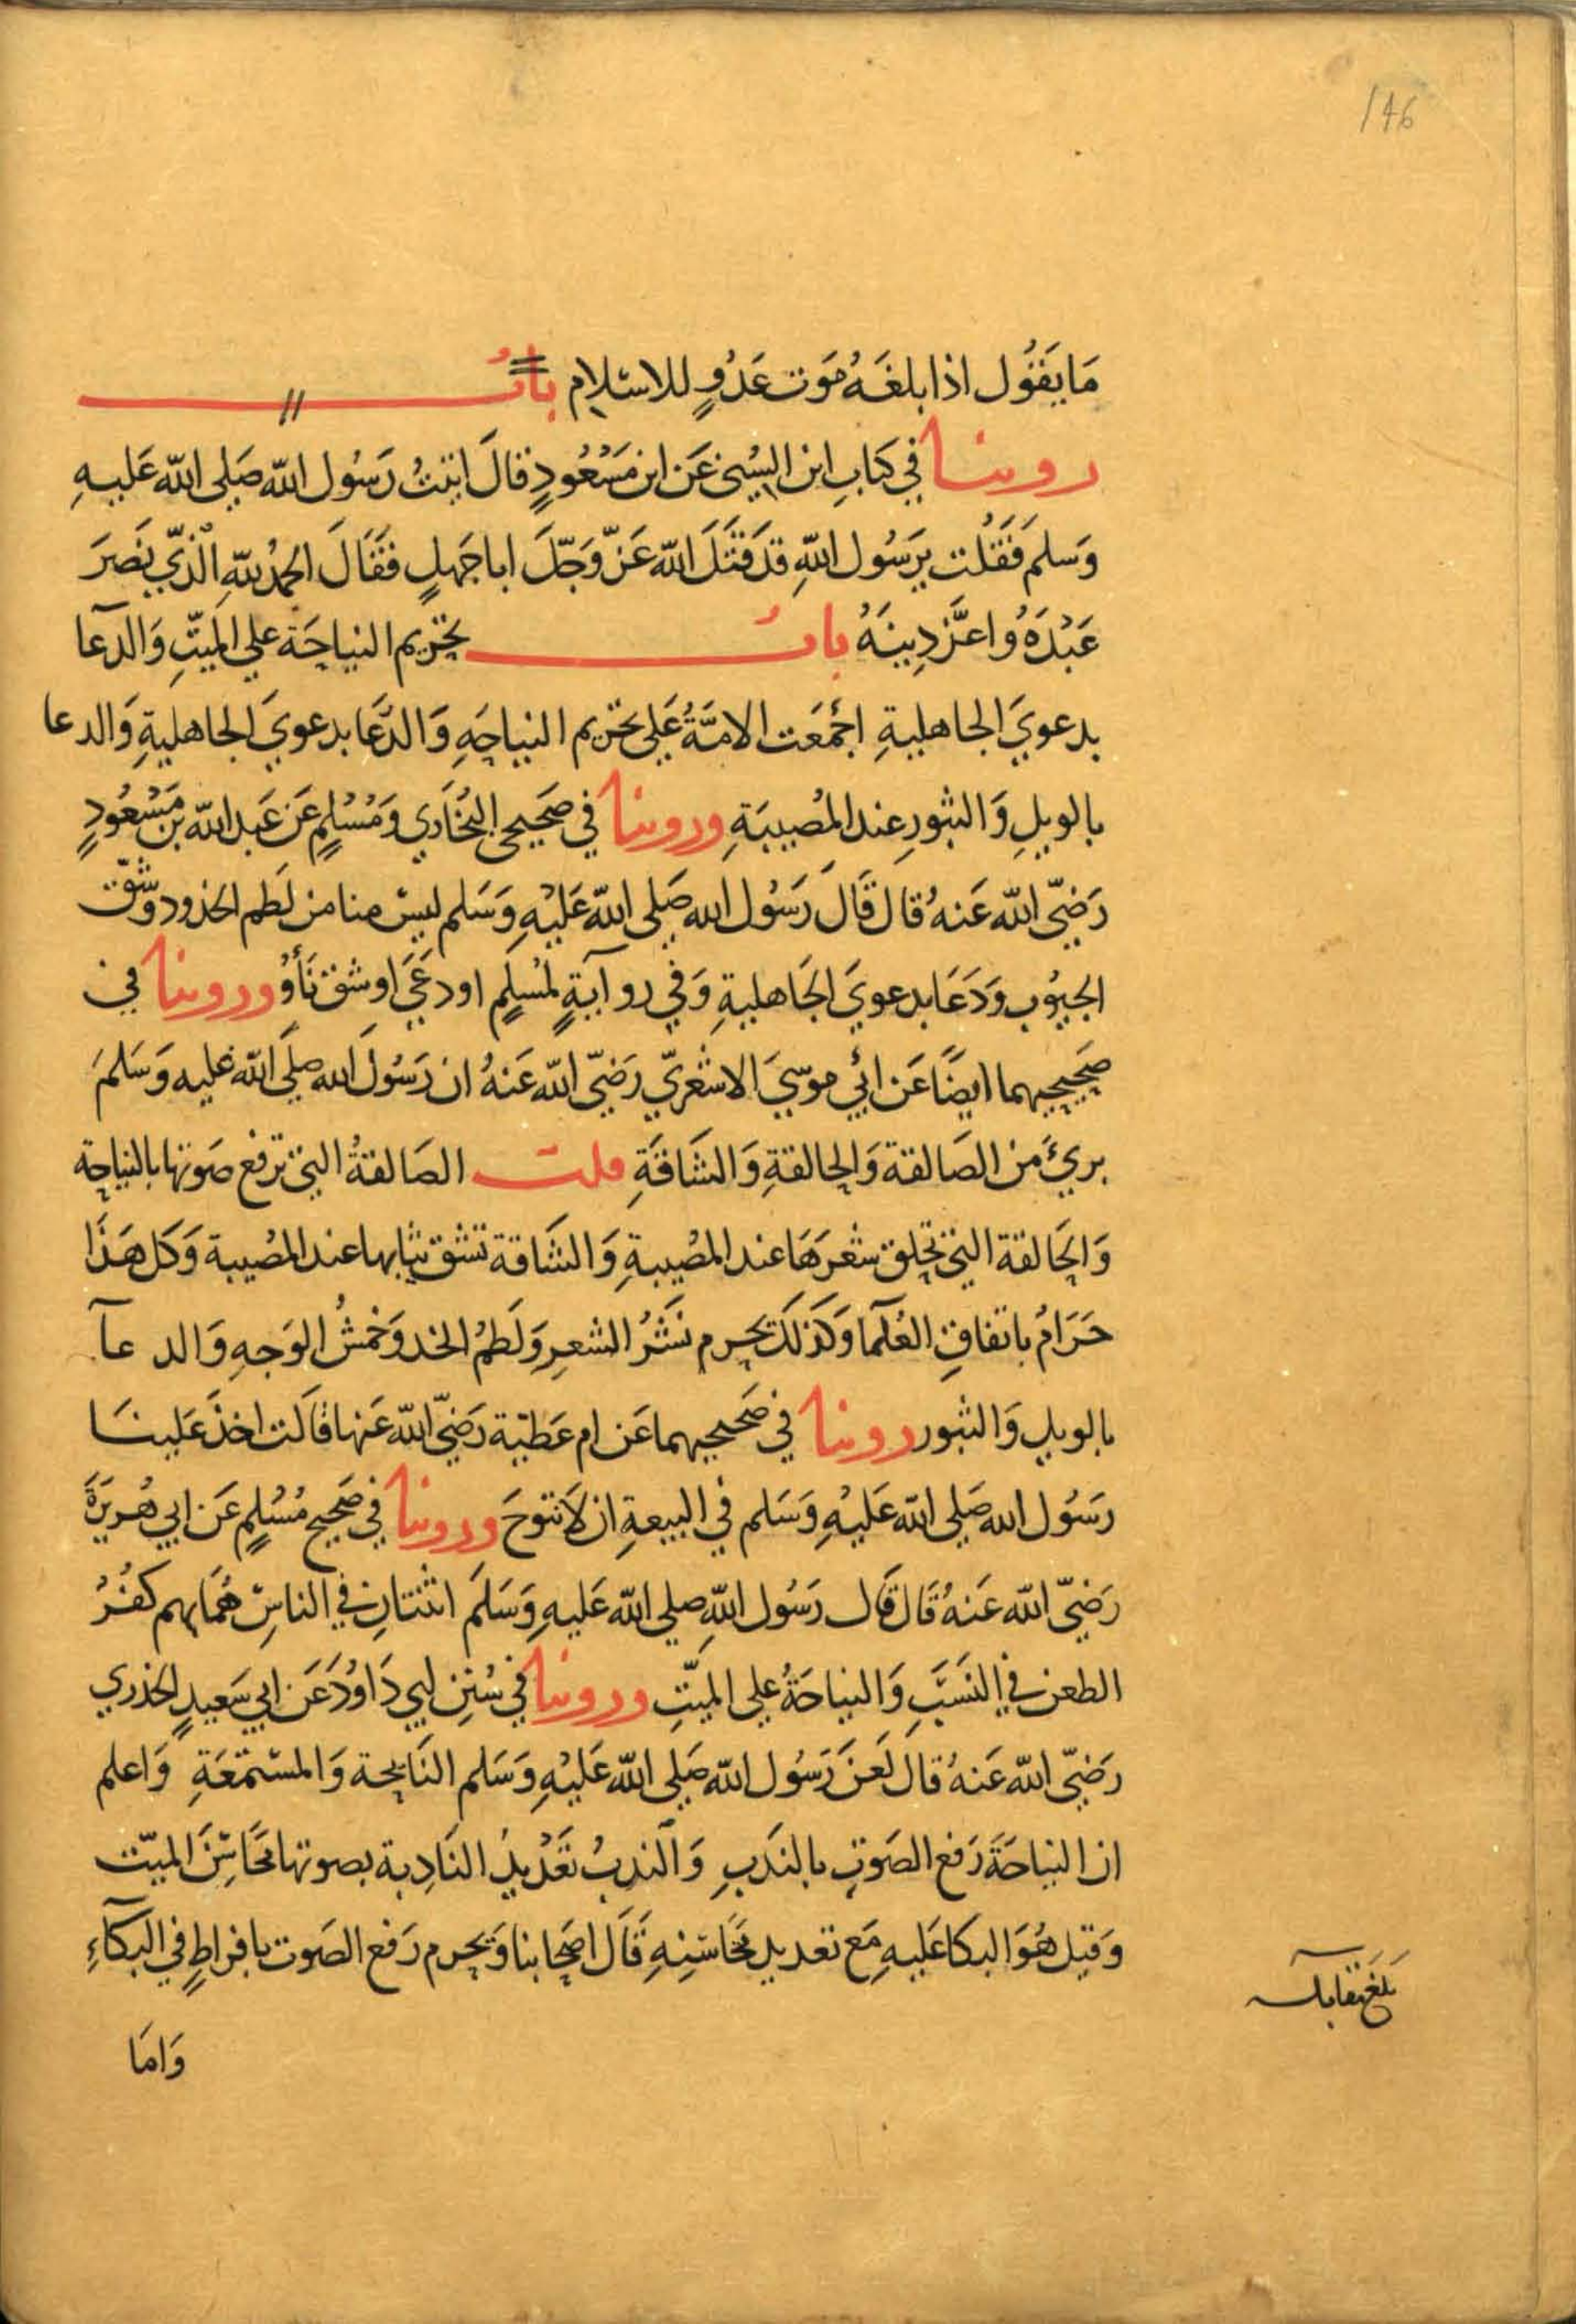 146
مَا يَقُول اذا بلغَهُ مَوَت عَدُوٍ للاسْلامِ بابُ
روينا في كتَابِ ابن السُّني عَن ابن مَسْعُودٍ قالَ اتيتُ رَسُول اللّه صَلى اللّه عَليهِ
وَسلمَ فَقُلت يرَسُول اللّهِ قدقَتَلَ اللّه عَزّ وَجّلَ اباجَهلٍ فقَالَ الحمدُ للّهِ الّذي نَصَرَ
عَبْدَهُ واعَزَّ دِينَهُ بابُ تحَريم النياحَة علي الميَتِّ وَالدعآ
بدعوي الجاهليةِ اجْمَعَت الامَّةُ عَلى تحَريم النياحَهِ وَالدُّعَا بدعويَ الجاهليةِ وَالدعا
بالويلِ وَالثبورِ عند المُصيبَةِ وروينا في صَحيحى البُخَاري وَمُسْلمٍ عَن عَبد اللّه بن مَسْعُودٍ
رَضيَّ اللّه عَنهُ قال قَالَ رَسُول اللّه صَلى اللّه عَليْهِ وَسَلم ليسَ منا من لَطم الخدود وشَقّ
الجيُوب وَدَعَا بدعويَ الجَاهليةِ وَفي روآيةٍ لمُسلمٍ اودعَيَ اوشق بَأوْ وروينا في
صَحيحيهما ايضًا عَن ابي موسيَ الاشعَريّ رَضيّ اللّه عَنهُ ان رَسُولَ اللّه صلَى اللّه عليه وَسَلمَ
بريءٌ من الصَالقة وَالحالقةِ وَالشَاقةِ قلت الصَالقةُ التي ترفع صَوتها بالنياحة
وَالحَالقة التي تحلق شعرَهَا عند المصُيبةِ وَالشَاقة تشق ثيابها عند المصُيبة وَكل هَذَا
حَرَامٌ باتفاقِ العُلَمآ وَكذلكَ يحرم نَشْرُ الشعِر وَلَطمُ الخد وَخمْشُ الوَجهِ وَالد عآ
بالويل وَالثبور روينا في صَحيحيهما عَن ام عَطيّة رَضيّ اللّه عَنها قالَت اخذَ عَلينَا
رَسُول اللّه صَلي اللّه عَليْهِ وَسَلم في البيعةِ ان لاَ نتوحَ وروينا في صَحيح مُسْلمٍ عَن ابي هُريَرَةَ
رَضيّ اللّه عَنهُ قَال قَال رَسُول اللّهِ صلي اللّه عَليهِ وَسَلَم اثنتانِ في الناسِ هُمَا بهم كفُرُ
الطعن في النَسَبَ وَالنياحَةُ علي الميَتِّ وروينا في سُنَنِ ابي دَاوُدَ عَن ابي سَعيدٍ الخدري
رَضيّ اللّه عَنهُ قالَ لَعَنَ رَسُول اللّه صَلي اللّه عَليْهِ وَسَلم النَايحة وَالمسْتمَعَةِ وَاعلم
ان النياحَةَ رَفع الصَوتِ بالنَدبِ وَالندبُ تَعَديدُ النَادِبة بصوتها محَاسِنَ الميّت
وَقيل هُوَ البكا عَليهِ مَع تعديد محَاسنِهِ قَالَ اصحَابنا وَيحرم رَفع الصَوت بافراطٍ في البكآءِ
بَلَغَ مقابلة
وَامَا